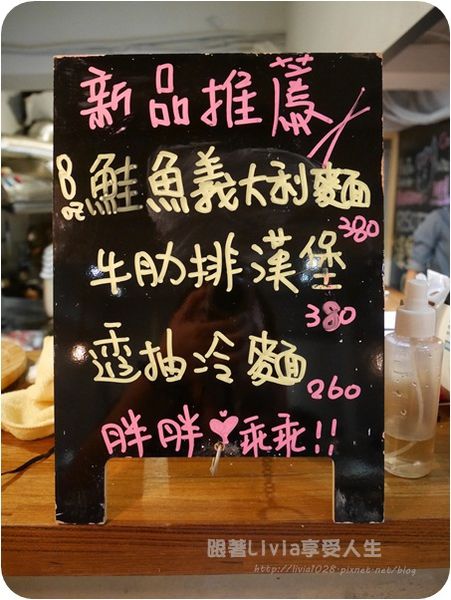 新品推薦
8oz鮭魚義大利麵
380
牛肋排漢堡
380
透抽冷麵
260
胖胖♥乖乖!!
跟著Livia享受人生
http://livia1028.pixnet.net/blog